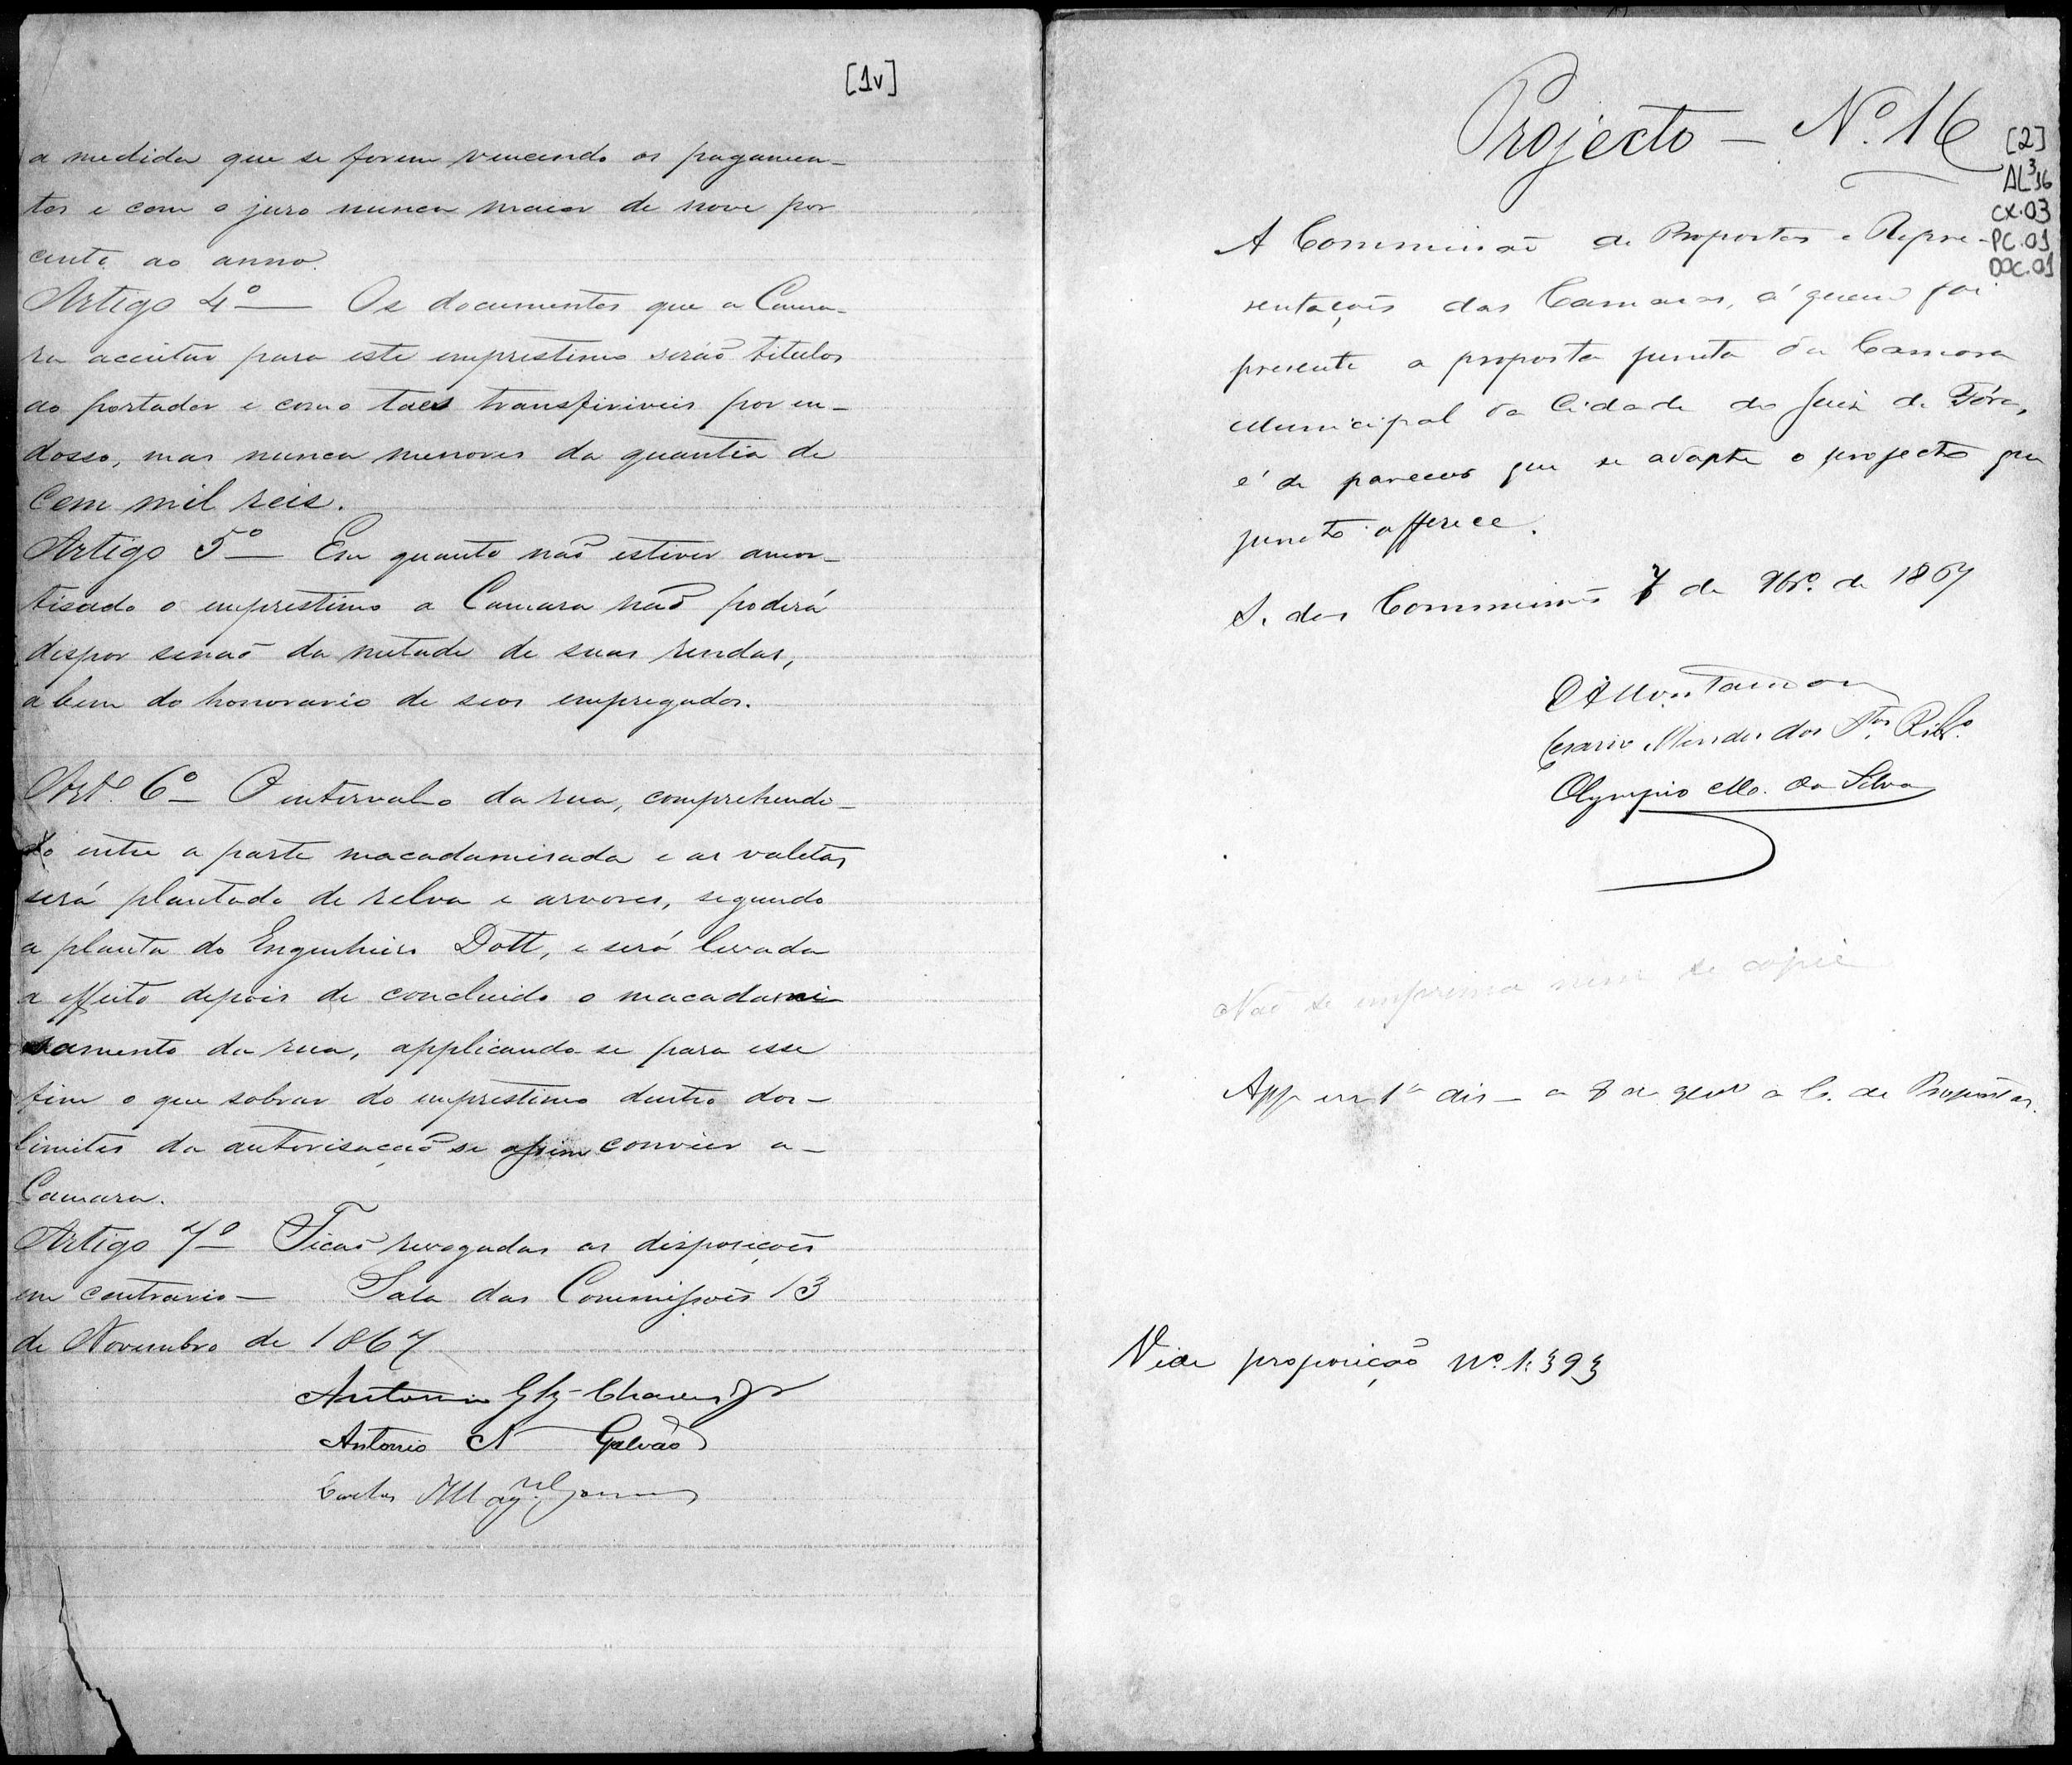 [1v]
a medida que se forem vencendo os pagamen-
tos e com o juro nunca maior de nove por
cento ao anno.
Artigo 4º — Os documentos que a Cama-
ra acceitar para este emprestimo serão titulos
ao portador e como taes transfiriveis por en-
dosso, mas nunca menores da quantia de
Cem mil reis.
Artigo 5º — Em quanto não estiver amor-
tisado o emprestimo a Camara não poderá
dispor senão da metade de suas rendas,
a bem do honorario de seos empregados.
Artº 6º — O intervalo da rua, comprehendi-
do entre a parte macadamisada e as valetas
será plantado de relva e arvores, segundo
a planta do Engenheiro Dott, e será levada
a effeito depois de concluido o macadami
samento da rua, applicando-se para esse
fim o que sobrar do emprestimo dentro dos-
limites da autorisação se assim convier a-
Camara.
Artigo 7º Ficão revogadas as disposições
em contrario — Sala das Commissões 13
de Novembro de 1867
Antonio Glz Chaves Jr
Antonio N Galvão
Carlos
Projecto — Nº 16
[2]
AL³16
CX.03
PC.01
DOC.01
A Commissão de Propostas e Repre-
sentações das Camaras, á quem foi
presente a proposta junta da Camara
Municipal da Cidade do Juiz de Fóra,
é de parecer que se adopte o projecto que
junto offerece.
S. das Commissões 7 de 9brº. de 1867
Cesario Mendes dos Stos Ribrº
Olympio Mo. da Silva
Não se imprima nem se copie
App em 1ª dis — a 8 de a C. de Propostas.
Vide proposição Nº 1:393